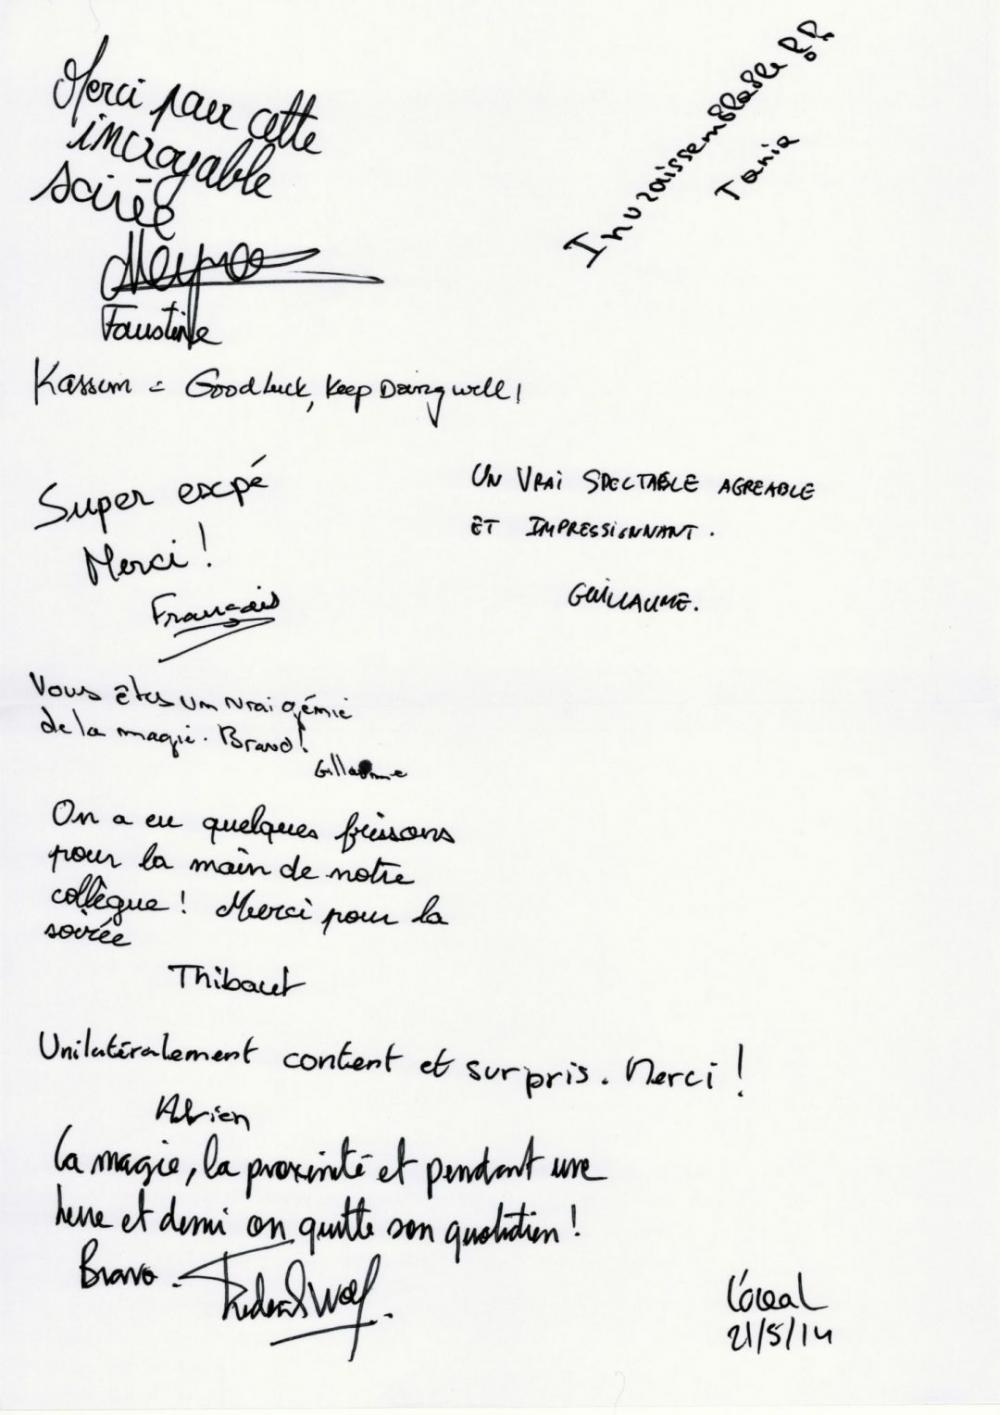 Merci pour cette
incroyable
soirée
Faustine
Invraissemblable
Tania
Kassem = Good luck, Keep Doing well!
Super expé
Merci !
François
UN VRAI SPECTABLE AGREABLE
ET IMPRESSIONNANT.
GUILLAUME.
Vous êtes un vrai génie
de la magie. Bravo!
Guillaume
On a eu quelques frissons
pour la main de notre
collègue ! Merci pour la
soirée
Thibaut
Unilatéralement content et surpris. Merci !
Adrien
La magie, la proximité et pendant une
heure et demi on quitte son quotidien !
Bravo.
L'oreal
21/5/14